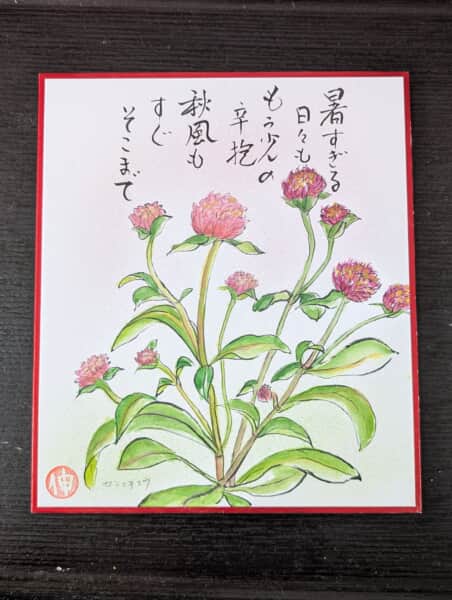 暑すぎる
日々も
もう少しの
辛抱
秋風も
すぐ
そこまで
センニチコウ